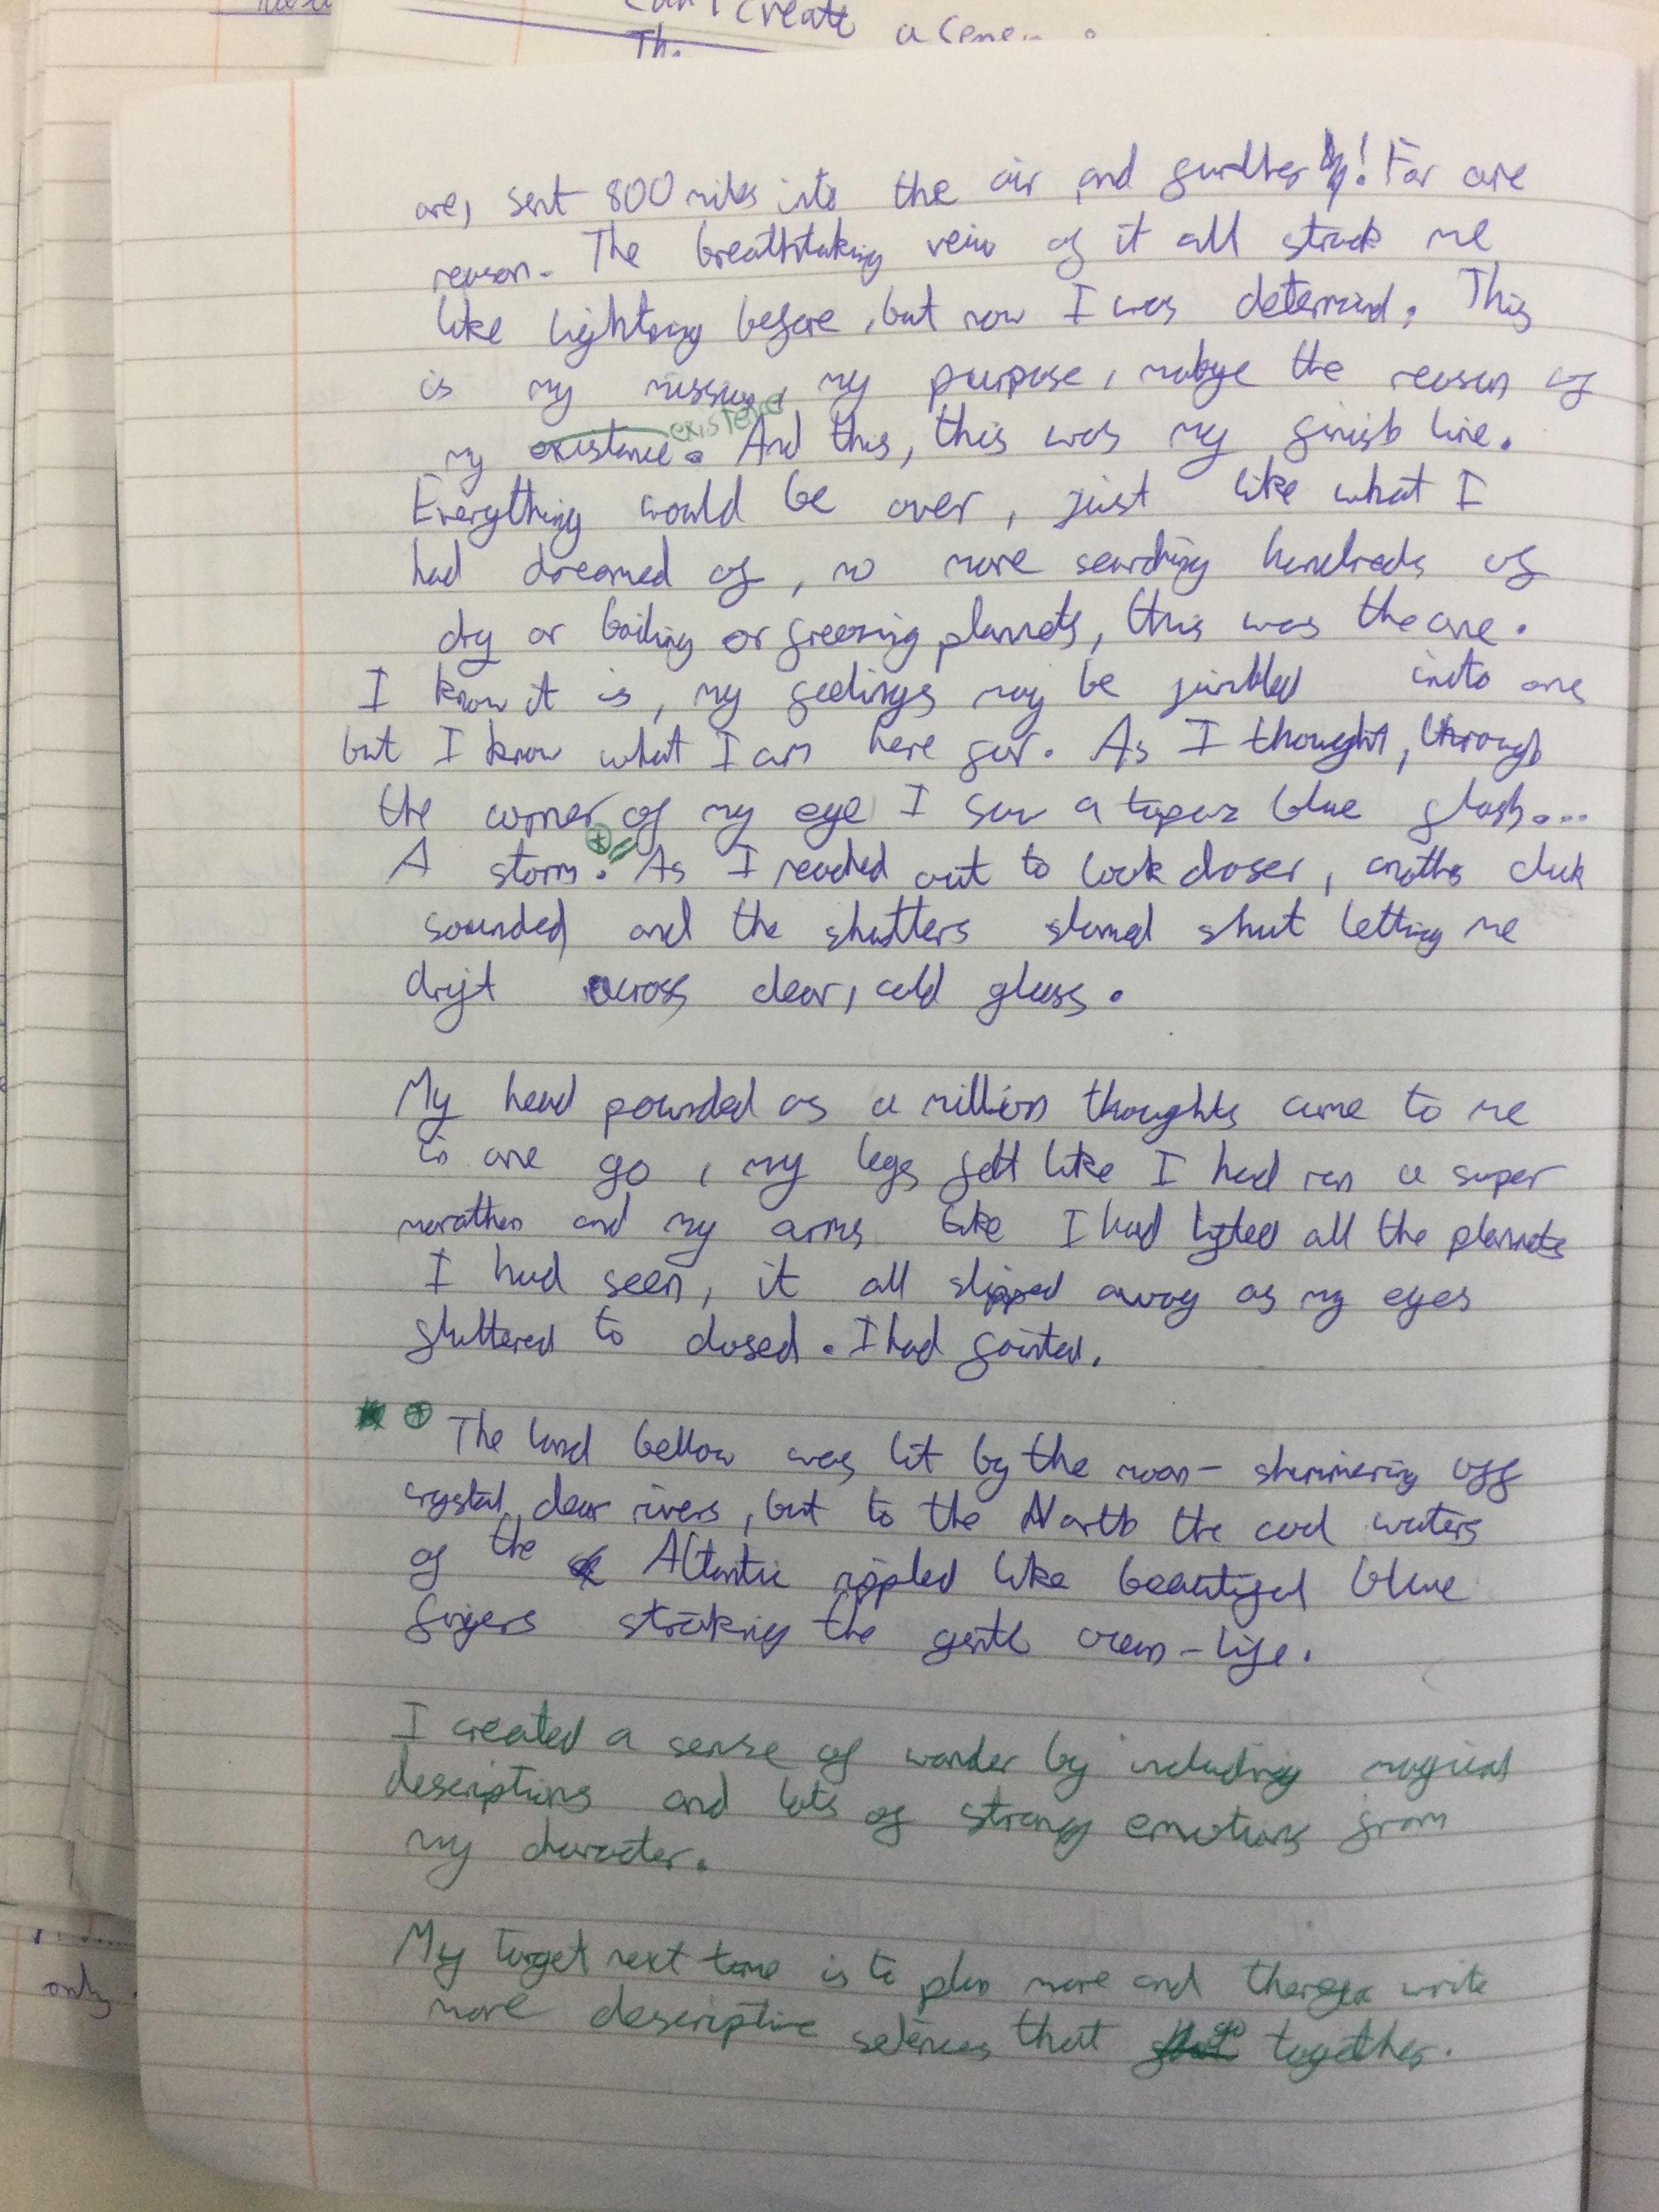 can I create a scene
Th.
are, sent 800 miles into the air and further! For one
reason. The breathtaking veiw of it all struck me
like lightning before, but now I was determind. This
is my mission, my purpose, mabye the reason of
existence
my existance. And this, this was my finish line.
Everything would be over, just like what I
had dreamed of, no more searching hundreds of
dry or boiling or freezing plannets, this was the one.
I know it is, my feelings may be jumbled into one
but I know what I am here for. As I thought, through
the corner of my eye I saw a topaz blue flash...
A storm. As I reached out to look closer, another click
sounded and the shutters slamed shut letting me
drift across clear, cold glass.
My head pounded as a million thoughts came to me
in one go, my legs felt like I had ran a super
marathon and my arms like I had lifted all the plannets
I had seen, it all slipped away as my eyes
fluttered to closed. I had fainted.
The land bellow was lit by the moon - shimmering off
crystal clear rivers, but to the North the cool waters
of the Altantic rippled like beautiful blue
fingers stroking the gentle ocean-life.
I created a sense of wonder by including magical
descriptions and lots of strong emotions from
my character.
My Target next time is to plan more and write
more descriptive setences that go together.
only